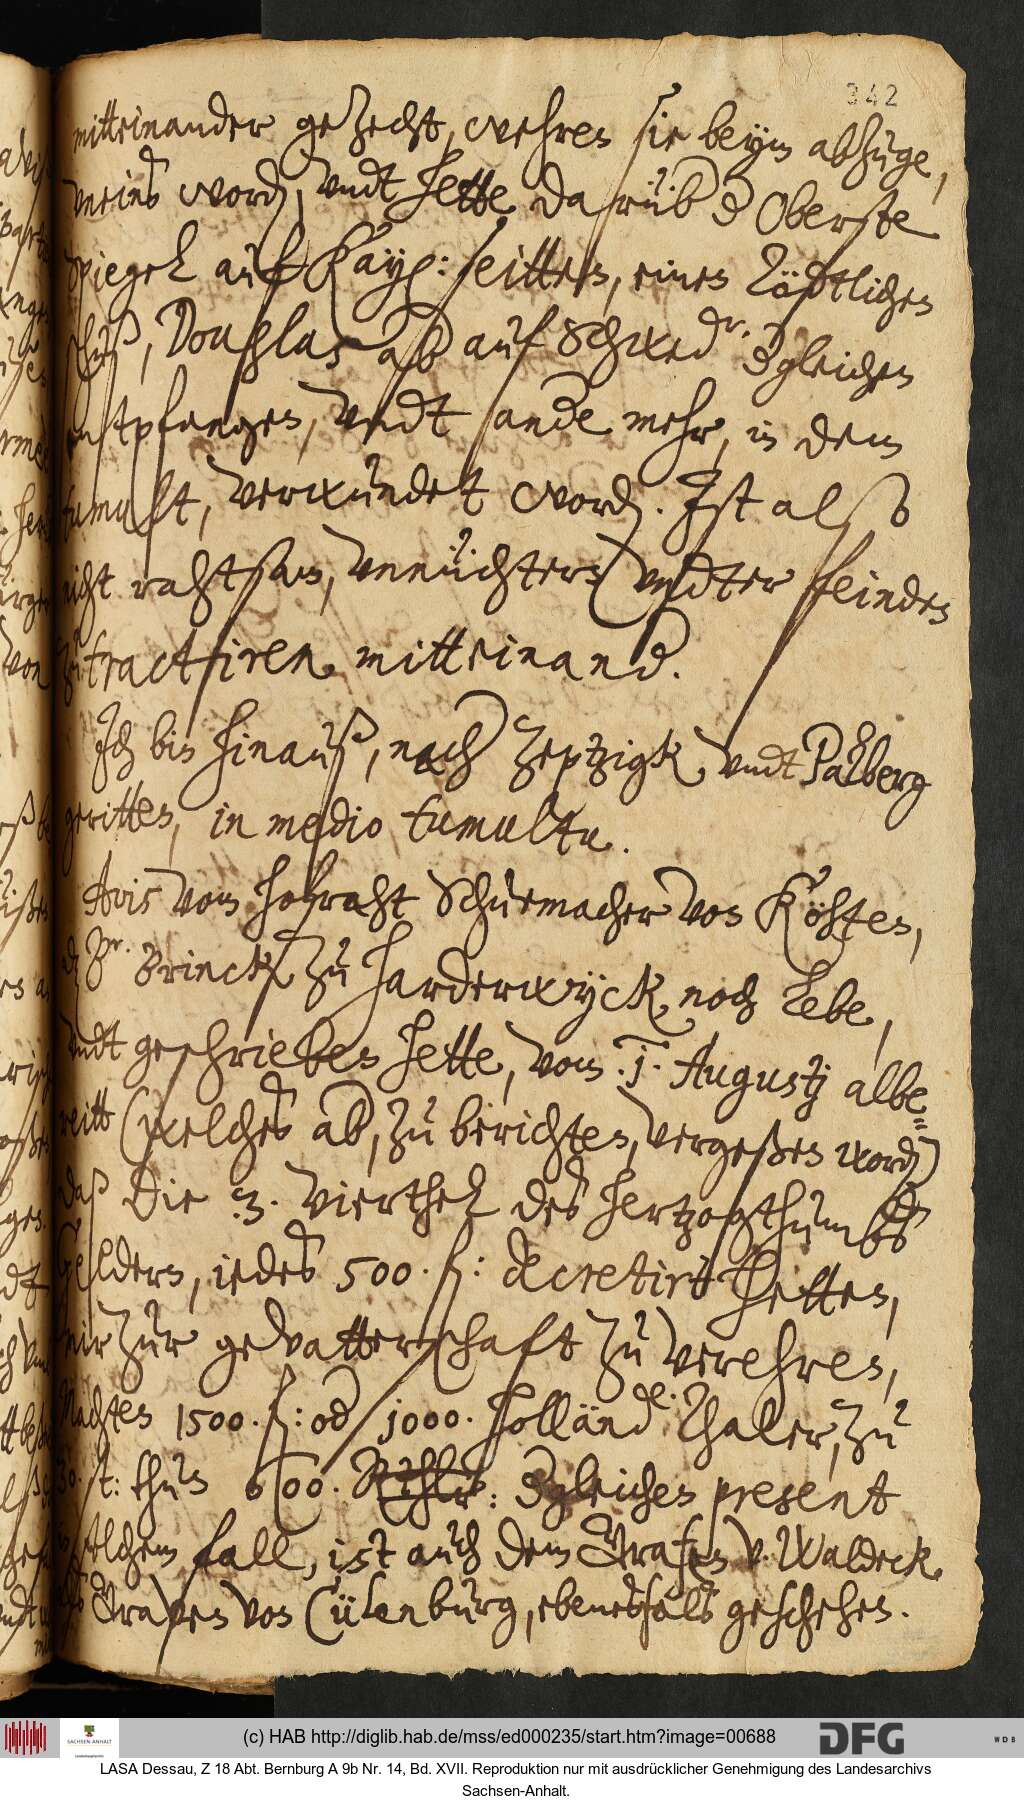 342
mitteinander gezecht, wehren sie beym abzuge,
uneins word, vndt hette darüb d Oberste
Spiegel auf Kayß: seitten, einen tödtlichen
schuß, Douglas ab auf Schwed.r dgleichen
entpfangen, vndt ande mehr, in dem
tumult, verwundet word. Ist also
nicht rahtsam, vnnüchtern vndter feinden
zu tractiren mitteinand.
Ich bin hinauß, nach Zeptzigk vndt Palberg
geritten, in medio tumultu.
Avis vom Johraht Schuemacher von Köhten,
dz Dr. Brinck zu Harderwyck noch lebe,
vndt geschrieben hette, vom .1. Augusty albe=
reitt (welches ab, zu berichten, vergeßen word)
daß die .3. vierthel des Hertzogthumbs
Geldern, iedes 500. fl: decretirt hetten,
mir zur gevatterschaft zu verehren,
Machten 1500. fl: od 1000. Holländ.e Thaler, zu
30. st: thun 600. Rthlr: dgleichen present
in solchem fall, ist auch dem Grafen v. Waldeck,
als Graven von Cülenburg, ebenesfalß geschehen.
(c) HAB http://diglib.hab.de/mss/ed000235/start.htm?image=00688
SACHSEN-ANHALT
DFG
WDB
LASA Dessau, Z 18 Abt. Bernburg A 9b Nr. 14, Bd. XVII. Reproduktion nur mit ausdrücklicher Genehmigung des Landesarchivs
Sachsen-Anhalt.